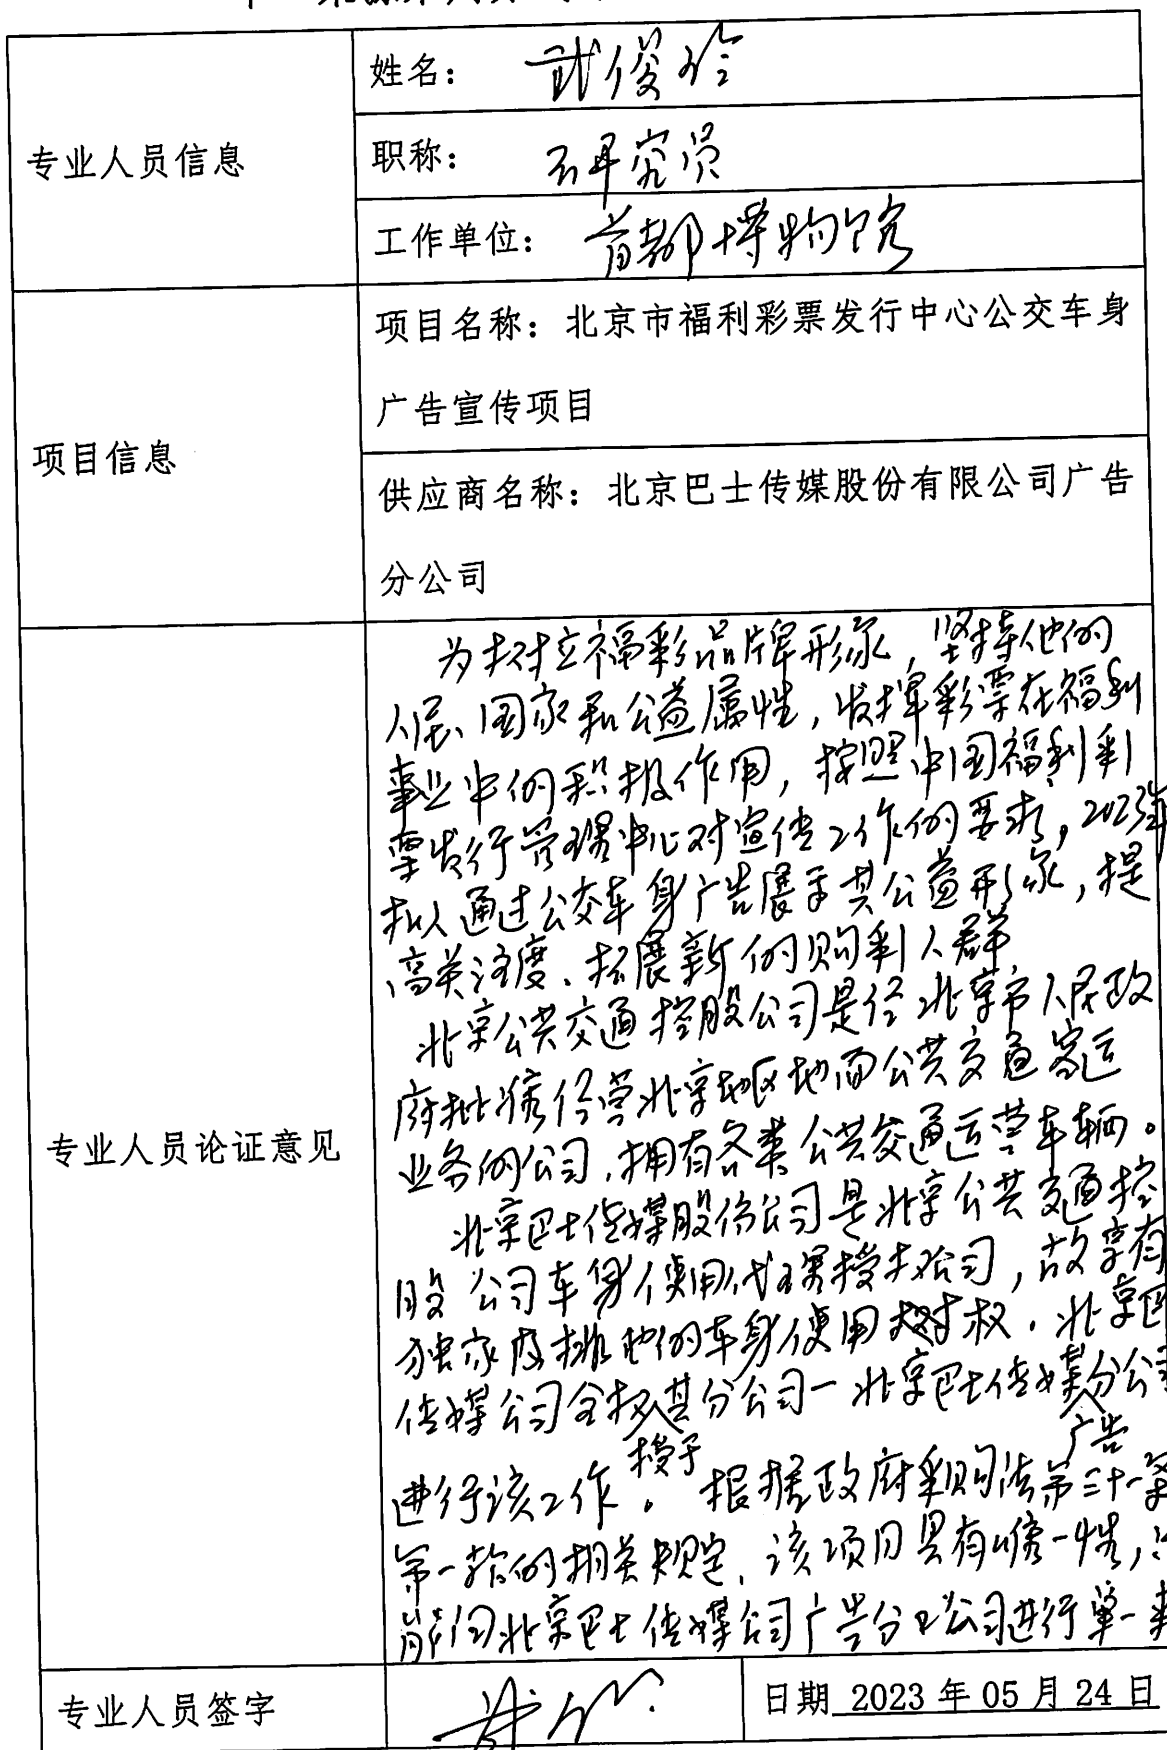 姓名： 武俊玲
专业人员信息
职称： 研究员
工作单位： 首都博物馆
项目名称：北京市福利彩票发行中心公交车身
广告宣传项目
项目信息
供应商名称：北京巴士传媒股份有限公司广告
分公司
为树立福彩品牌形象，坚持他的
人民、国家和公益属性，发挥彩票在福利
事业中的积极作用，按照中国福利彩
票发行管理中心对宣传工作的要求，2023年
拟通过公交车身广告展示其公益形象，提
高关注度、拓展新的购彩人群
北京公共交通控股公司是经北京市人民政
府批准经营北京地区地面公共交通客运
专业人员论证意见
业务的公司，拥有各类公共交通运营车辆。
北京巴士传媒股份公司是北京公共交通控
股公司车身使用代理授权公司，故享有
独家及排他的车身使用权．北京巴
传媒公司全权授予其分公司—北京巴士传媒广告分公司
进行该工作。根据政府采购法第三十一条
第一款的相关规定，该项目具有唯一性，只
能向北京巴士传媒公司广告分公司进行单一来
专业人员签字
日期 2023 年 05 月 24 日